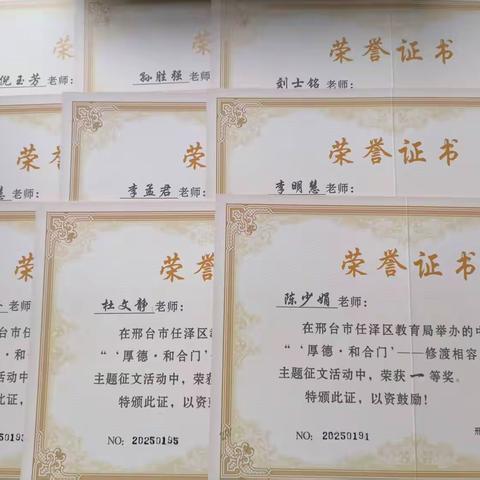 荣
荣誉
荣誉证书
倪玉芳 老师：
孙胜强 老师：
刘士铭 老师：
荣
荣
荣誉证书
慧 老师：
李孟君 老师：
李明慧 老师：
荣
老师：
在邢台市任泽区
“‘厚德
主题征文活动
特颁此证
20250193
荣誉证
杜文静 老师：
在邢台市任泽区教
“‘厚德·和合门’
主题征文活动中，荣获
特颁此证，以资
NO：20250195
荣誉证书
陈少娟 老师：
在邢台市任泽区教育局举办的中
“‘厚德·和合门’——修渡相容
主题征文活动中，荣获 一 等奖。
特颁此证，以资鼓励！
NO：20250191
邢